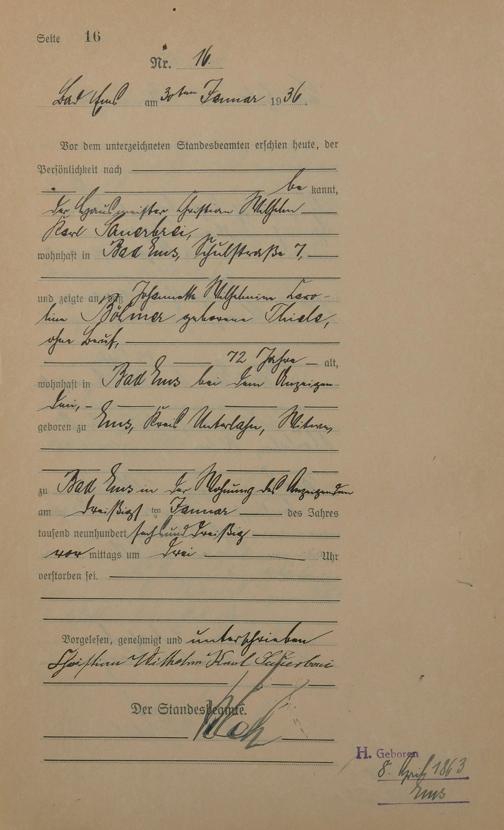 Seite 16
Nr. 16
Bad Ems am 30ten Januar 1936.
Vor dem unterzeichneten Standesbeamten erschien heute, der
Persönlichkeit nach
be kannt,
der Hausmeister Christian Wilhelm
Karl Sauerbrei,
wohnhaft in Bad Ems, Schulstraße 7,
und zeigte an, daß Johannette Wilhelmine Caro-
line geborene Thiels,
ohne Beruf,
72 Jahre alt,
wohnhaft in Bad Ems bei dem Anzeigen-
den,
geboren zu Ems, Kreis Unterlahn, Witwe,
zu Bad Ems in der Wohnung des Anzeigenden
am dreißigsten Januar des Jahres
tausend neunhundert sechsunddreißig
vor mittags um drei Uhr
verstorben sei.
Vorgelesen, genehmigt und unterschrieben
Christian Wilhelm Karl Sauerbrei
Der Standesbeamte.
H. Geboren
8. April 1863
Ems